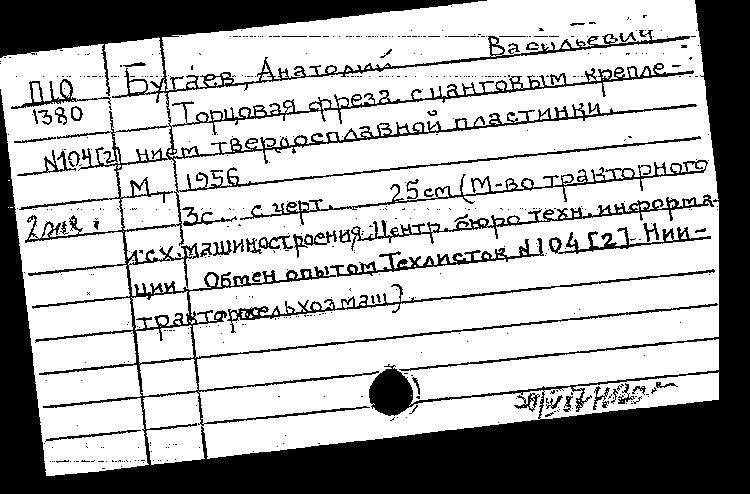 Бугаев, Анатолий Васильевич
П10
1380
Торцовая фреза с цанговым крепле-
N104[2] нием твердосплавной пластинки.
М., 1956.
2 3с. с черт. 25см (М-во тракторного
и с.х. машиностроения. Центр. бюро техн. информа-
ции. Обмен опытом. Техлисток N104 [2] Нии-
тракторсельхозмаш).